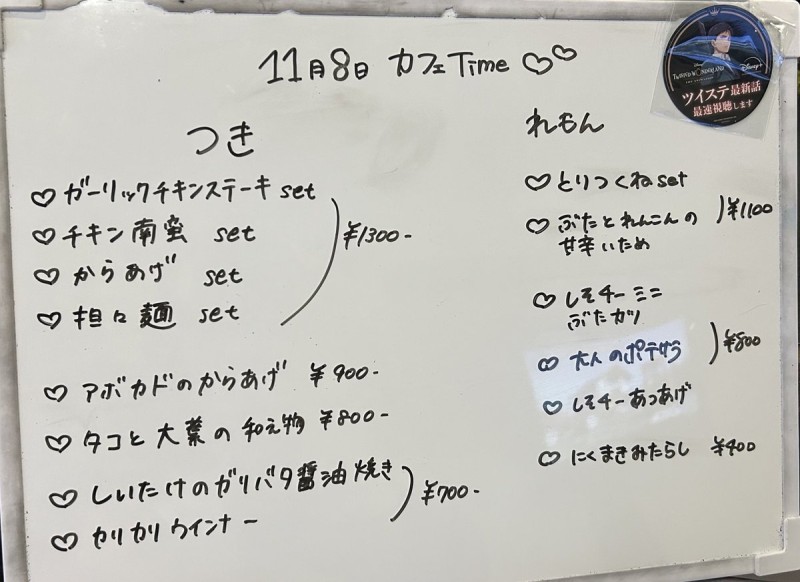 11月8日 カフェTime ♡♡
つき
♡ ガーリックチキンステーキ set
♡ チキン南蛮 set
♡ からあげ set
♡ 担々麺 set
¥1300-
♡ アボカドのからあげ ¥900-
♡ タコと大葉の和え物 ¥800-
♡ しいたけのガリバタ醤油焼き
♡ カリカリウインナー
¥700-
れもん
♡ とりつくねset
♡ ぶたとれんこんの
甘辛いため
¥1100
♡ しそチーミニ
ぶたカツ
♡ 大人のポテサラ
♡ しそチーあつあげ
¥800
♡ にくまきみたらし ¥400
Disney
TWISTED WONDERLAND
Disney+
ツイステ最新話
最速視聴します